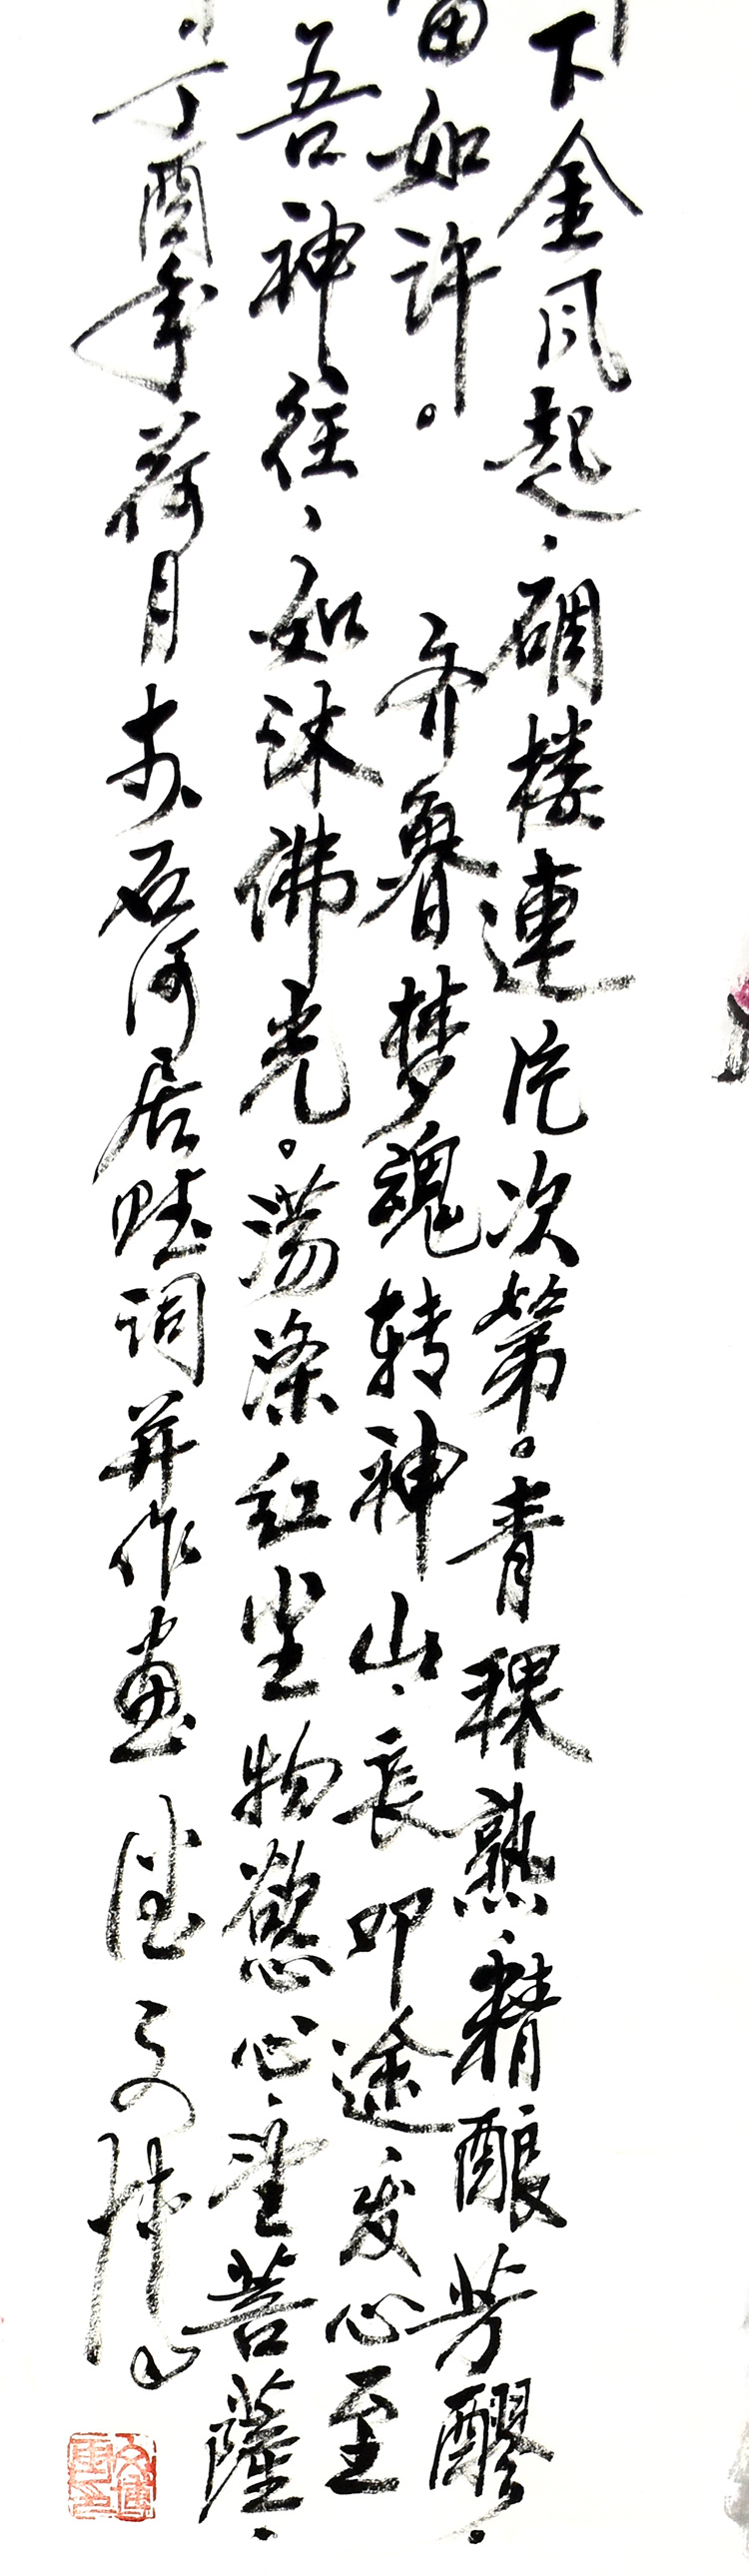 下金风起，碉楼連片次第。青稞熟，精酿芳醪，
留如许。 齐鲁梦魂转神山，长叩途发心至
吾神往，如沐佛光。荡滌红尘物慾心，望菩薩，
丁酉年荷月 於石河居 填词并作画